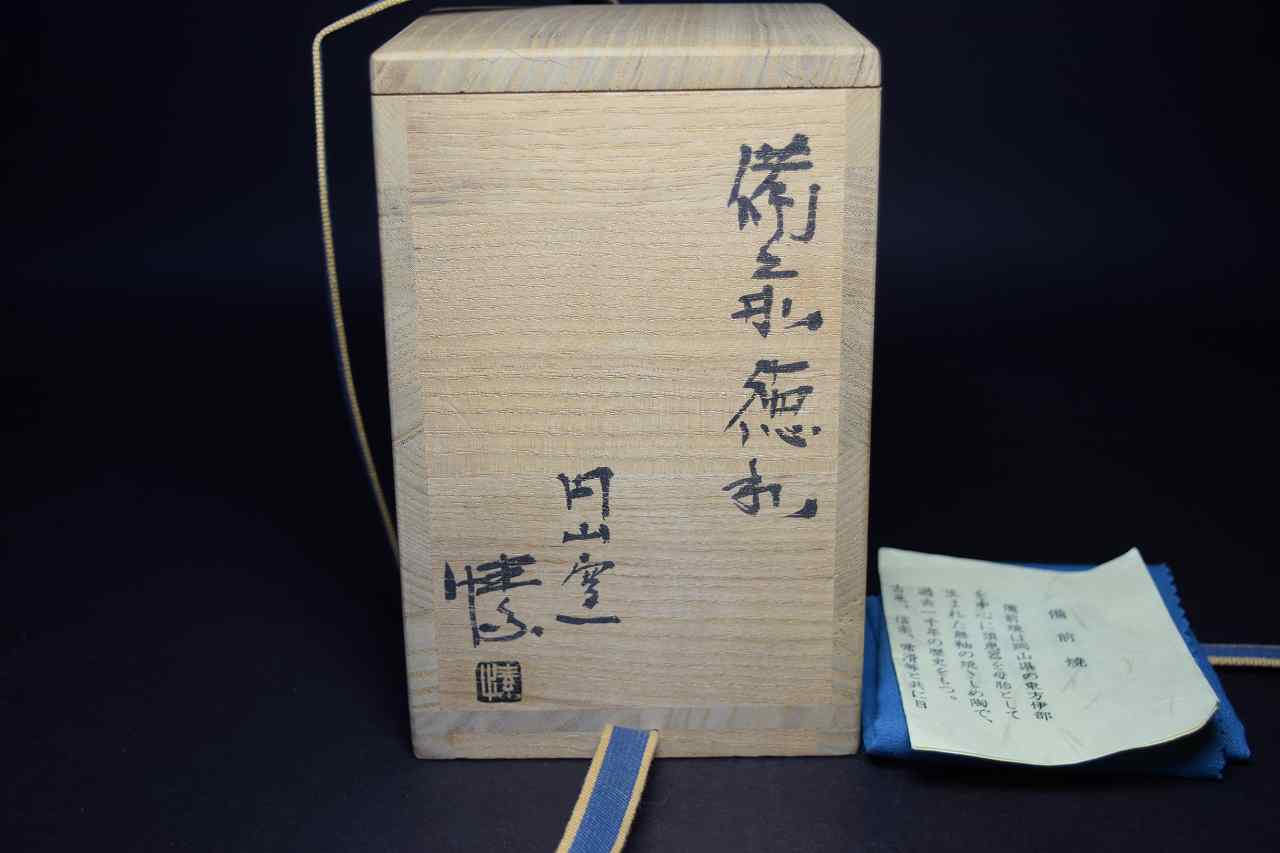 備前徳利
円山窯
愫
愫
備前焼
備前焼は岡山県の東方伊部
を中心に須恵器を母胎として
生まれた無釉の焼きしめ陶で、
過去一千年の歴史をもつ。
古来、信楽、常滑等と共に日